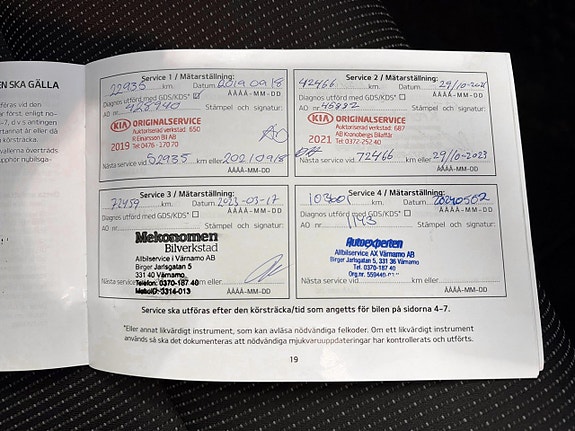 EN SKA GÄLLA
Service 1 / Mätarställning:
22935 km. Datum 2019 09 18
Diagnos utförd med GDS/KDS* ÅÅÅÅ-MM-DD
AO nr. Stämpel och signatur:
KIA ORIGINALSERVICE
Auktoriserad verkstad 650
2019 R Einarsson Bil AB
Tel: 0476 -170 70
Nästa service vid 52935 km eller 2021/09/18
ÅÅÅÅ-MM-DD
Service 2 / Mätarställning:
42466 km. Datum 29/10-2021
Diagnos utförd med GDS/KDS* ÅÅÅÅ-MM-DD
AO nr. 45882 Stämpel och signatur:
KIA ORIGINALSERVICE
Auktoriserad verkstad: 687
2021 AB Kronobergs Bilaffär
Tel: 0372-252 40
Nästa service vid 72466 km eller 29/10-2023
ÅÅÅÅ-MM-DD
Service 3 / Mätarställning:
72459 km. Datum 2023-03-17
Diagnos utförd med GDS/KDS* ÅÅÅÅ-MM-DD
AO nr. Stämpel och signatur:
Mekonomen
Bilverkstad
Allbilservice i Värnamo AB
Birger Jarlsgatan 5
331 40 Värnamo
Telefon: 0370-187 40
Nästa service vid km eller
ÅÅÅÅ-MM-DD
Service 4 / Mätarställning:
km. Datum 20240502
Diagnos utförd med GDS/KDS* ÅÅÅÅ-MM-DD
AO nr. 1143 Stämpel och signatur:
Autoexperten
Allbilservice AX Värnamo AB
Birger Jarlsgatan 5, 331 36 Värnamo
Tel. 0370-187 40
Nästa service vid km eller
ÅÅÅÅ-MM-DD
Service ska utföras efter den körsträcka/tid som angetts för bilen på sidorna 4–7.
*Eller annat likvärdigt instrument, som kan avläsa nödvändiga felkoder. Om ett likvärdigt instrument
används så ska det dokumenteras att nödvändiga mjukvaruuppdateringar har kontrollerats och utförts.
19